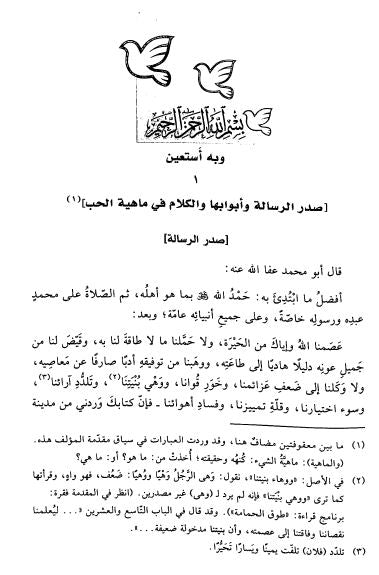 بسم الله الرحمن الرحيم
وبه أستعين
١
[صدر الرسالة وأبوابها والكلام في ماهية الحب](١)
[صدر الرسالة]
قال أبو محمد عفا الله عنه:
أفضلُ ما ابْتُدِئَ به: حَمْدُ الله ﷻ بما هو أهلُه، ثم الصّلاةُ على محمدٍ
عبدِه ورسولِه خاصّةً، وعلى جميعِ أنبيائه عامّة؛ وبعد:
عَصَمنا اللهُ وإياكَ من الحَيْرَة، ولا حَمَّلنا ما لا طاقةَ لنا به، وقَيَّضَ لنا من
جَميلِ عونِه دليلًا هاديًا إلى طاعَتِه، ووهَبنا من توفيقِهِ أدبًا صارفًا عن مَعاصِيه،
ولا وَكَلنا إلى ضَعفِ عَزائمنا، وخَوَرِ قُوانا، ووَهْي بُنْيَتِنا(٢)، وتَلدُّدِ آرائنا(٣)،
وسوء اختيارنا، وقلّةِ تمييزنا، وفسادِ أهوائنا ـ فإنّ كتابكَ وَرَدني من مدينة
(١) ما بين معقوفتين مضافٌ هنا، وقد وردت العبارات في سياق مقدّمة المؤلف هذه.
(والماهية): ماهيَّةُ الشيء: كُنْهُه وحقيقته؛ أُخذتْ من: ما هو؟ أو: ما هي؟
(٢) في الأصل: «ووهاء بنيتنا»، تقول: وَهَى الرَّجُلُ وَهْيًا ووُهيًا: ضَعُف، فهو واهٍ، وقرأتها
كما ترى «ووهي بنْيَتِنا» فإنه لم يرد لـ (وهى) غير مصدرين. (انظر في المقدمة فقرة:
برنامج قراءة: «طوق الحمامة»). وقد قال في الباب التّاسع والعشرين «... ليُعلمنا
نقصاننا وفاقتنا إلى عصمته، وأن بنيتنا مدخولة ضعيفة...».
(٣) تلدّد (فلان) تلفّت يمينًا ويَسارًا تَحَيُّرًا.